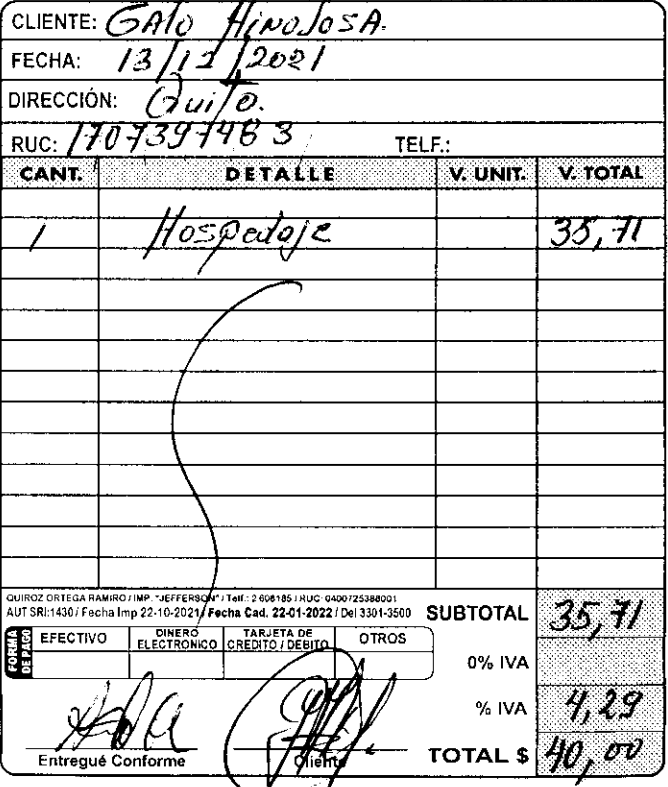 CLIENTE: GAlO HINOJOSA.
FECHA: 13/12/2021
DIRECCIÓN: Quito.
RUC: 1707397463 TELF.:
CANT. DETALLE V. UNIT. V. TOTAL
1 Hospedaje 35,71
QUIROZ ORTEGA RAMIRO / IMP. "JEFFERSON" / Telf.: 2 608185 / RUC: 0400725388001
AUT SRI:1430 / Fecha Imp 22-10-2021 / Fecha Cad. 22-01-2022 / Del 3301-3500
SUBTOTAL 35,71
FORMA DE PAGO
EFECTIVO DINERO ELECTRONICO TARJETA DE CREDITO / DEBITO OTROS
0% IVA
% IVA 4,29
Entregué Conforme Cliente
TOTAL $ 40,00